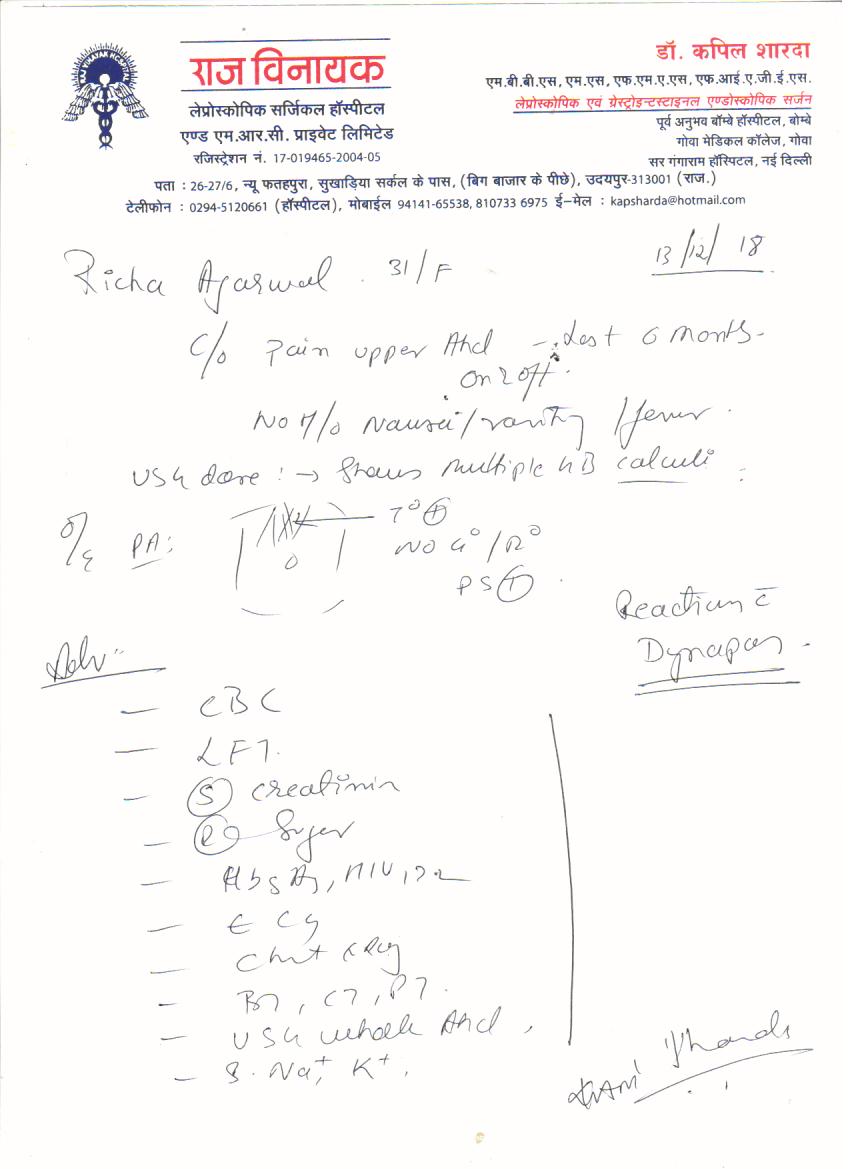 राज विनायक
लेप्रोस्कोपिक सर्जिकल हॉस्पीटल
एण्ड एम.आर.सी. प्राइवेट लिमिटेड
रजिस्ट्रेशन नं. 17-019465-2004-05
डॉ. कपिल शारदा
एम.बी.बी.एस, एम.एस, एफ.एम.ए.एस, एफ.आई.ए.जी.ई.एस.
लेप्रोस्कोपिक एवं ग्रेस्ट्रोइन्टस्टाइनल एण्डोस्कोपिक सर्जन
पूर्व अनुभव बॉम्बे हॉस्पीटल, बोम्बे
गोवा मेडिकल कॉलेज, गोवा
सर गंगाराम हॉस्पिटल, नई दिल्ली
पता : 26-27/6, न्यू फतहपुरा, सुखाड़िया सर्कल के पास, (बिग बाजार के पीछे), उदयपुर-313001 (राज.)
टेलीफोन : 0294-5120661 (हॉस्पीटल), मोबाईल 94141-65538, 810733 6975 ई-मेल : kapsharda@hotmail.com
13/12/18
Richa Agarwal . 31/F
C/o Pain upper Abd - Last 6 months-
on & off.
No H/o Nausea/vomiting/fever.
USG done: → Shows multiple GB calculi
O/E PA: T° ⊕
NO G°/R°
PS ⊕
Reaction c̄
Dynapar
Adv:-
— CBC
— LFT.
— (S) Creatinin
— (R) Suger
— HbsAg, HIV,
— ECG
— Chest xRay
- BT, CT, PT.
— USG whole Abd,
— S. Na+, K+,